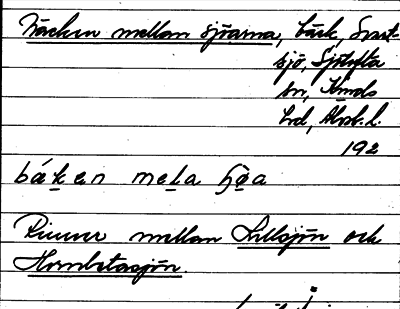 Bäcken mellan sjöarna, bäck, Svart-
sjö, Sjötofta
sn, Kinds
hd, Älvsb. l.
192
bákɛn mela ɧøa
Rinner mellan Lillsjön och
Hornbetasjön.